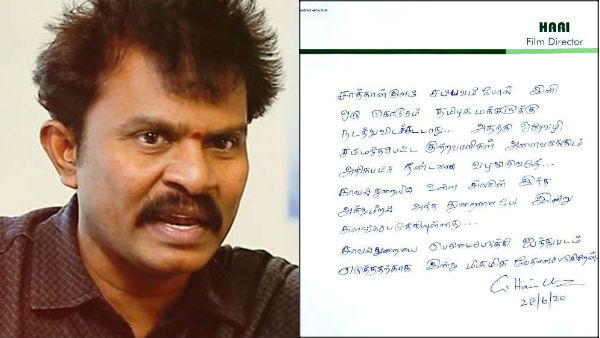 HARI
Film Director
சாத்தான்குளம் சம்பவம் போல் இனி
ஒரு கொடூரம் தமிழக மக்களுக்கு
நடந்துவிடக்கூடாது... அதற்கு ஒரேவழி
சம்மந்தப்பட்ட குற்றவாளிகள் அனைவருக்கும்
அதிகபட்ச தண்டனை வழங்குவதே...
காவல்துறையில் உள்ள சிலரின் இந்த
அத்துமீறல் அந்த துறையையே இன்று
களங்கப்படுத்தியுள்ளது...
காவல்துறையை பெருமைபடுத்தி ஐந்துபடம்
எடுத்ததற்காக இன்று மிகமிக வேதனைபடுகிறேன்
28/6/20